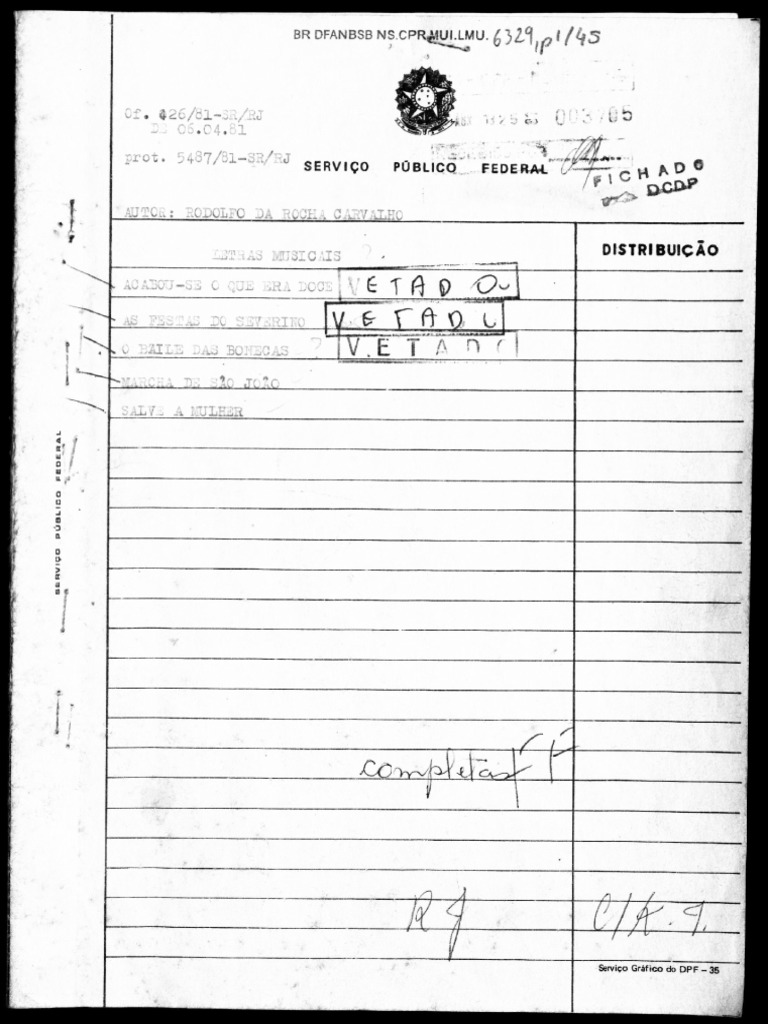 BR DFANBSB NS.CPR.MUI.LMU. 6329, p1/45
Of. 426/81-SR/RJ
DE 06.04.81
003705
prot. 5487/81-SR/RJ
SERVIÇO PÚBLICO FEDERAL
FICHADO
DCDP
AUTOR: RODOLFO DA ROCHA CARVALHO
DISTRIBUIÇÃO
LETRAS MUSICAIS ?
ACABOU-SE O QUE ERA DOCE VETADO
AS FESTAS DO SEVERINO VETADO
O BAILE DAS BONECAS ? VETADO
MARCHA DE SÃO JOÃO
SALVE A MULHER
SERVIÇO PÚBLICO FEDERAL
completas
RJ
Serviço Gráfico do DPF – 35